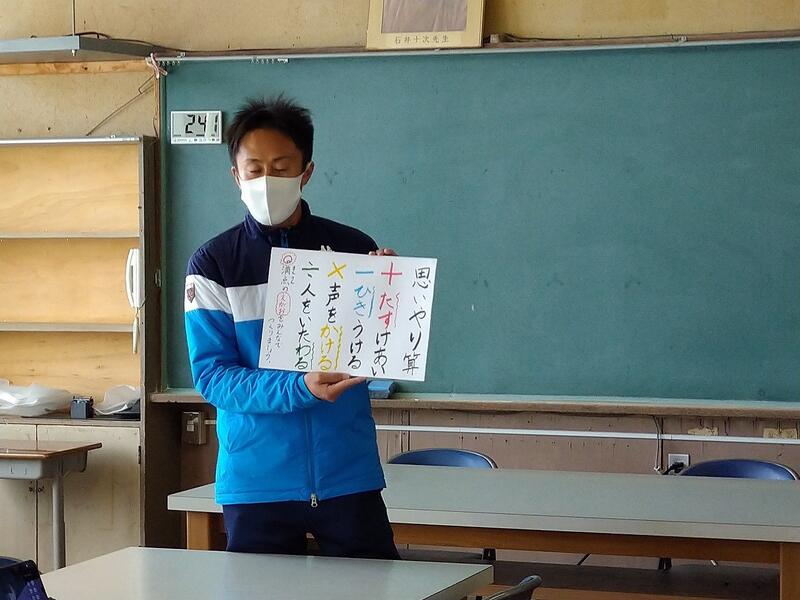 石井十次先生
241
思いやり算
＋たすけあい
－ひきうける
×声をかける
÷人をいたわる
そして
満点のえがおをみんなで
つくりましょう。